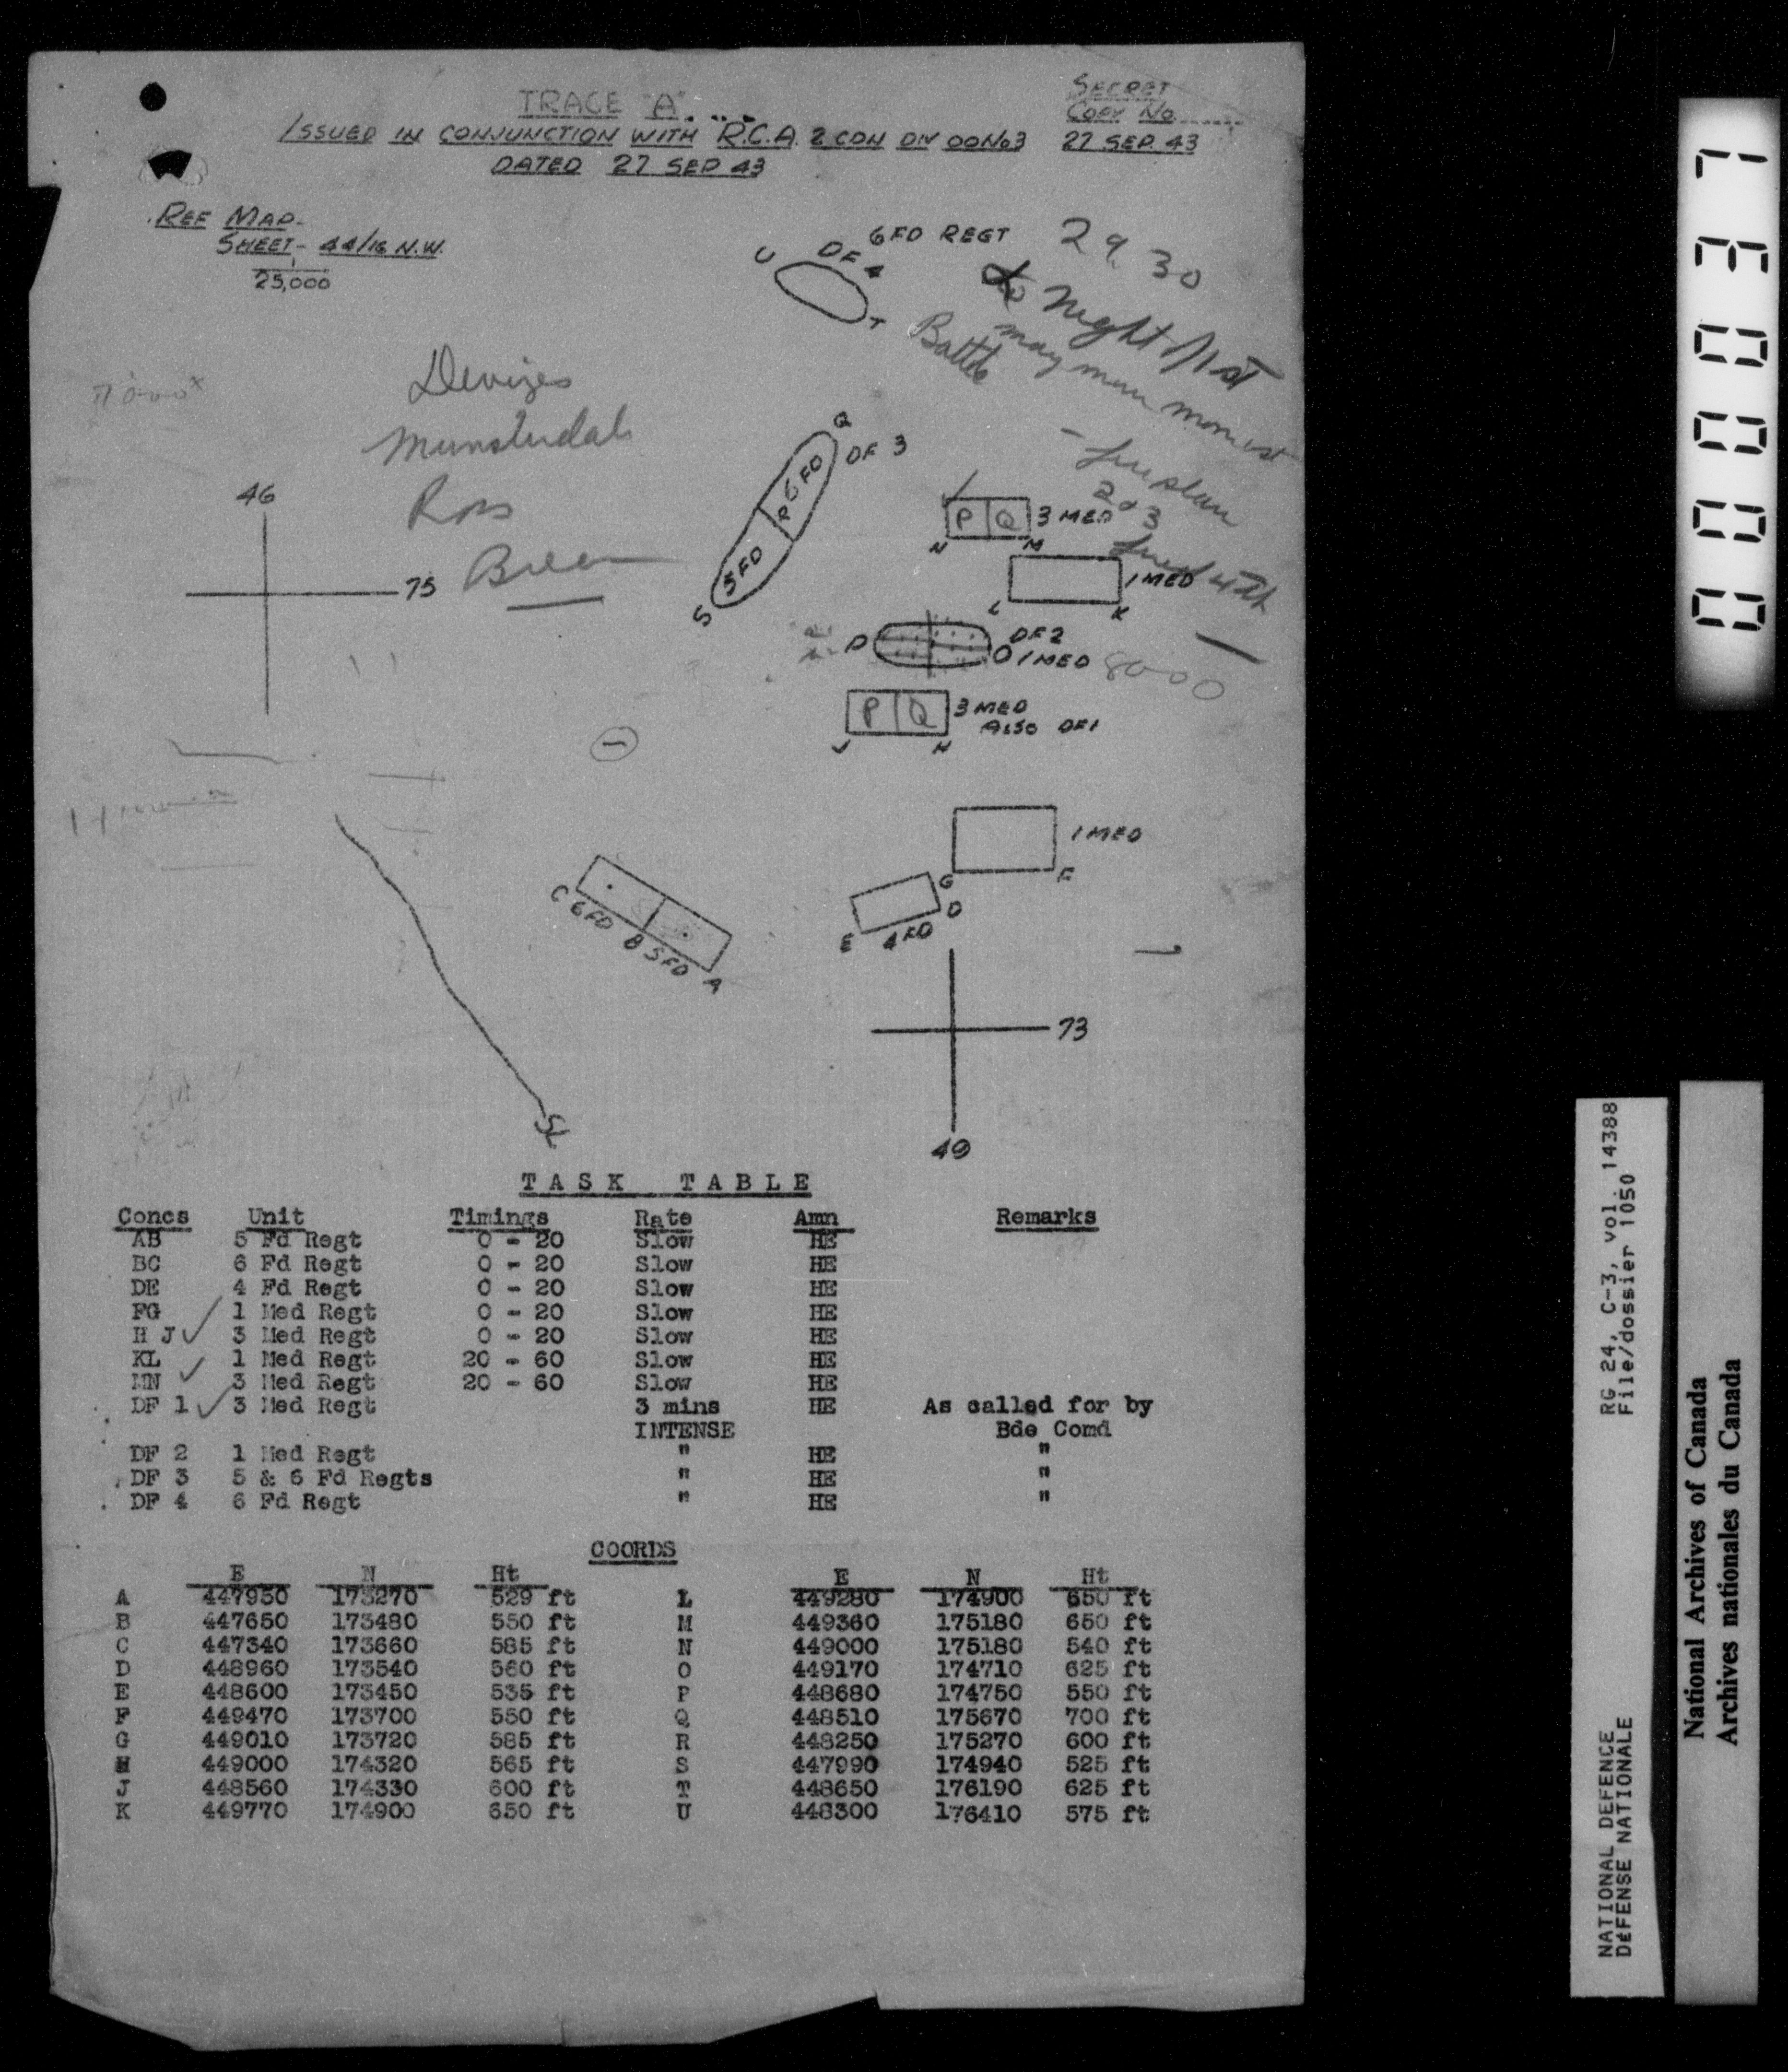 TRACE "A"
SECRET
COPY No......
ISSUED IN CONJUNCTION WITH R.C.A. 2 CDN DIV OO No3
27 SEP. 43
DATED 27 SEP 43
REF MAP-
SHEET- 44/16 N.W.
1
25,000
6 FD REGT
29, 30
U DF 4
T
Night
1st
Battle
may
Devizes
Ross
46
75
Q
DF 3
R 6 FD
5 FD
S
fireplan
2 or 3
P Q 3 MED
N M
1 MED
L K
4th
P
DF 2
O 1 MED
8000
P Q 3 MED
ALSO DF1
J H
1 MED
G F
D
E 4 FD
C 6 FD B 5 FD A
73
49
SL
TASK TABLE
Concs Unit Timings Rate Amn Remarks
AB 5 Fd Regt 0 - 20 Slow HE
BC 6 Fd Regt 0 - 20 Slow HE
DE 4 Fd Regt 0 - 20 Slow HE
FG 1 Med Regt 0 - 20 Slow HE
H J 3 Med Regt 0 - 20 Slow HE
KL 1 Med Regt 20 - 60 Slow HE
MN 3 Med Regt 20 - 60 Slow HE
DF 1 3 Med Regt 3 mins HE As called for by
INTENSE Bde Comd
DF 2 1 Med Regt " HE "
DF 3 5 & 6 Fd Regts " HE "
DF 4 6 Fd Regt " HE "
COORDS
E N Ht E N Ht
A 447950 173270 529 ft L 449280 174900 650 ft
B 447650 173480 550 ft M 449360 175180 650 ft
C 447340 173660 585 ft N 449000 175180 540 ft
D 448960 173540 560 ft O 449170 174710 625 ft
E 448600 173450 535 ft P 448680 174750 550 ft
F 449470 173700 550 ft Q 448510 175670 700 ft
G 449010 173720 585 ft R 448250 175270 600 ft
H 449000 174320 565 ft S 447990 174940 525 ft
J 448560 174330 600 ft T 448650 176190 625 ft
K 449770 174900 650 ft U 448300 176410 575 ft
000037
NATIONAL DEFENCE RG 24, C-3, vol. 14388
DÉFENSE NATIONALE File/dossier 1050
National Archives of Canada
Archives nationales du Canada